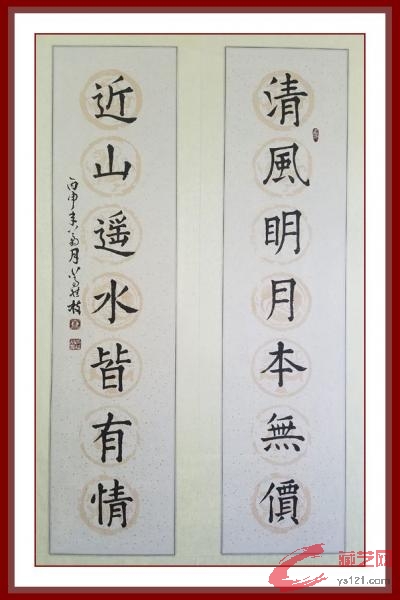 清風明月本無價
近山遥水皆有情
丙申
月
藏艺网
ys121.com